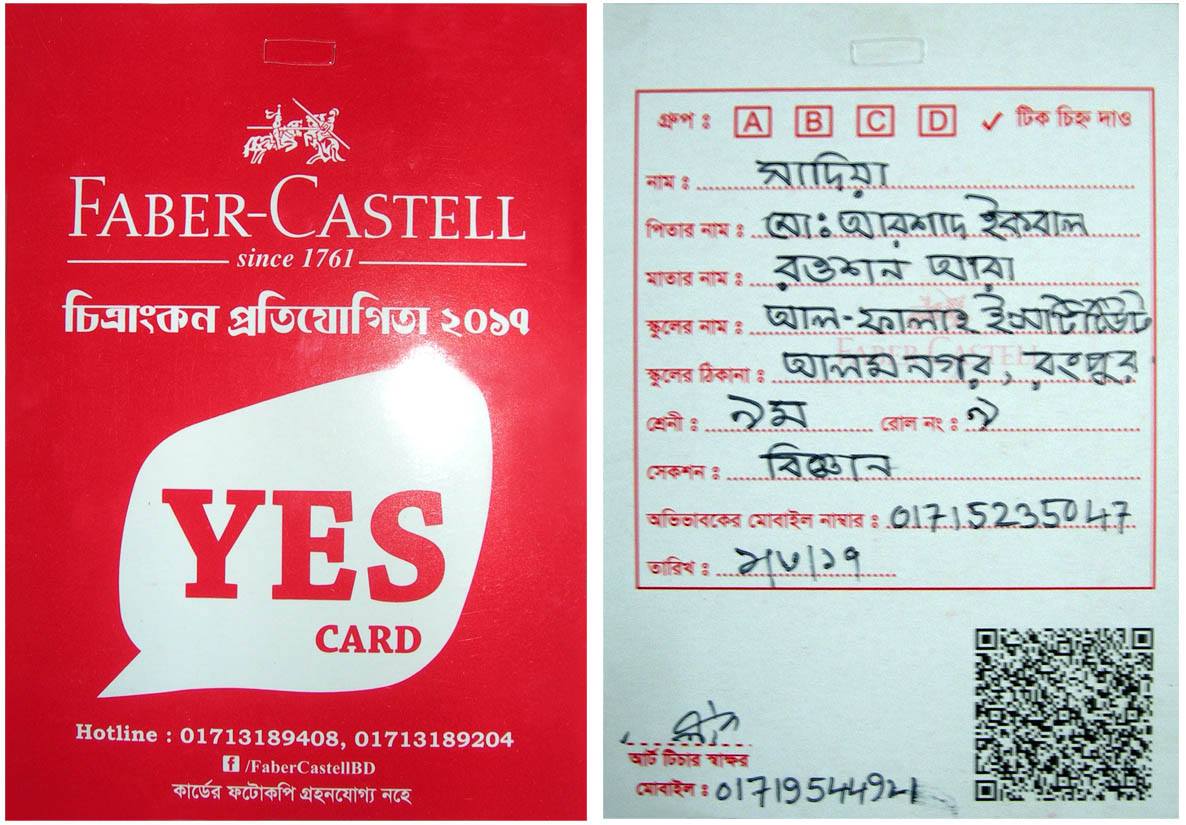 FABER-CASTELL
since 1761
চিত্রাংকন প্রতিযোগিতা ২০১৭
YES
CARD
Hotline : 01713189408, 01713189204
f /FaberCastellBD
কার্ডের ফটোকপি গ্রহনযোগ্য নহে
গ্রুপ ঃ A B C D ✓ টিক চিহ্ন দাও
নাম ঃ সাদিয়া
পিতার নাম ঃ মো: আরশাদ ইকবাল
মাতার নাম ঃ রওশন আরা
স্কুলের নাম ঃ আল-ফালাহ ইন্সটিটিউট
FABER-CASTELL
স্কুলের ঠিকানা ঃ আলমনগর, রংপুর
শ্রেনী ঃ ৯ম রোল নং ঃ ৯
সেকশন ঃ বিজ্ঞান
অভিভাবকের মোবাইল নাম্বার ঃ 01715235047
তারিখ ঃ ৯/৩/১৭
আর্ট টিচার স্বাক্ষর
মোবাইল ঃ 01719544921